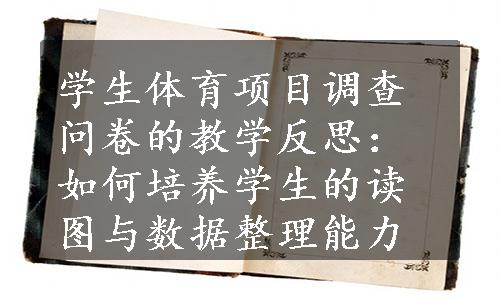 学生体育项目调查
问卷的教学反思：
如何培养学生的读
图与数据整理能力